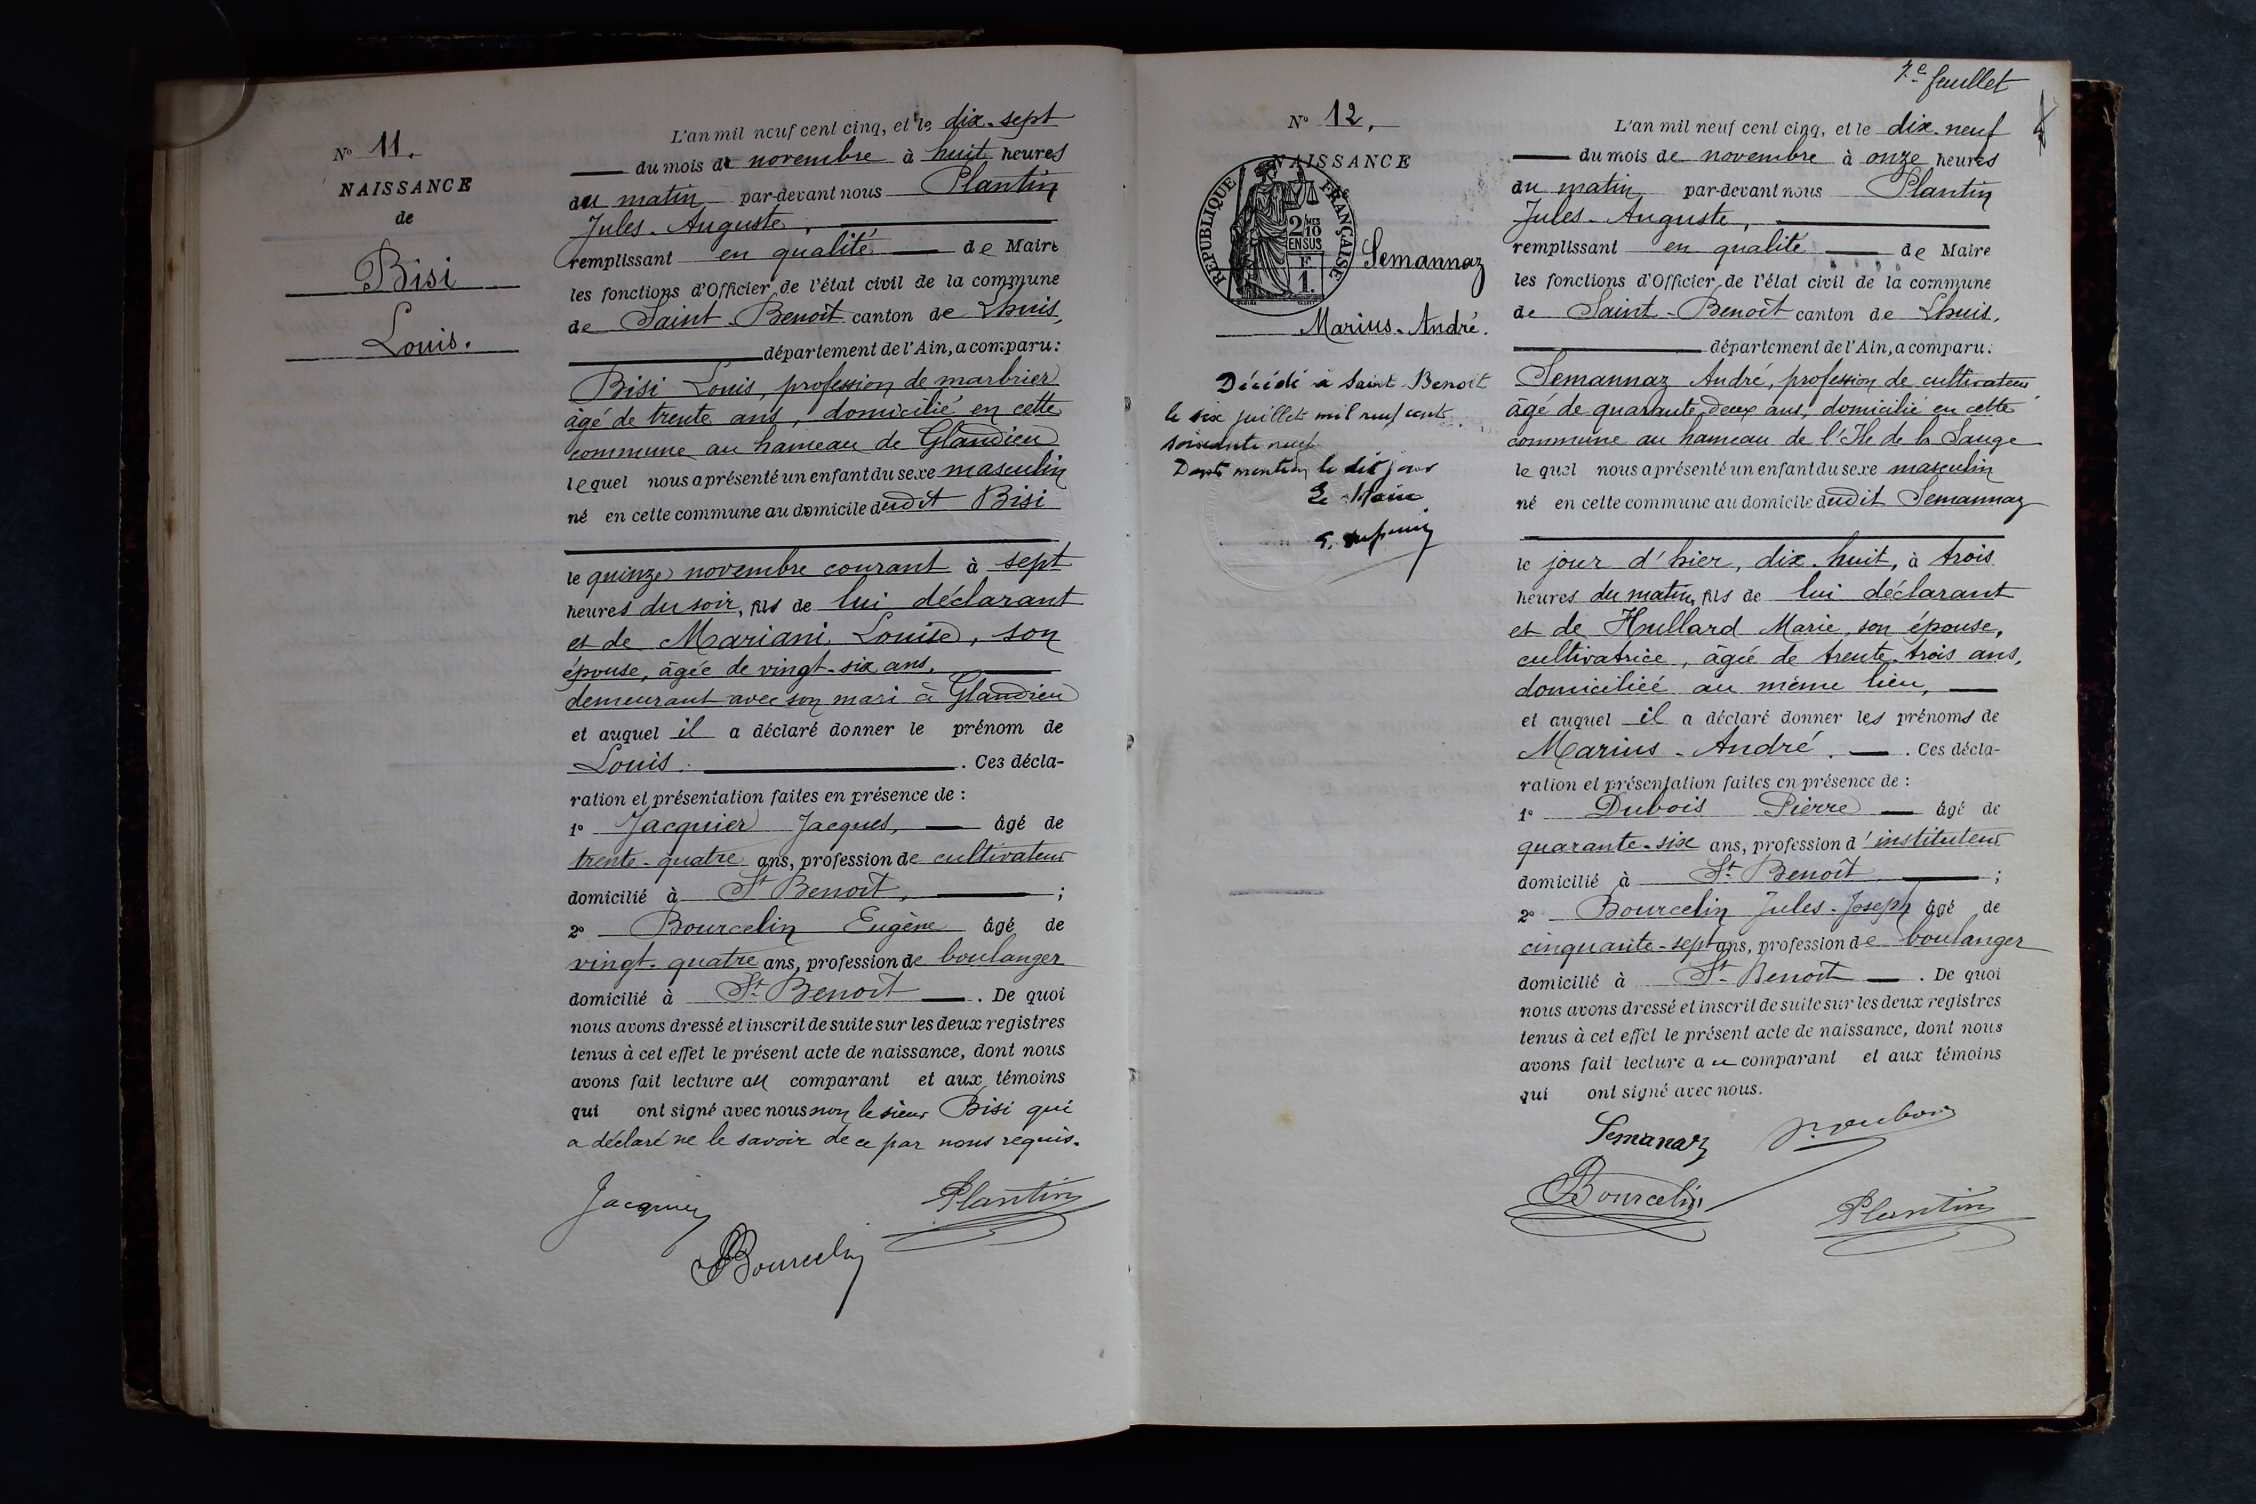 Nº 11.
NAISSANCE
de
Bisi
Louis.
L'an mil neuf cent cinq, et le dix-sept
du mois de novembre à huit heures
du matin par-devant nous Plantin
Jules-Auguste,
remplissant en qualité de Maire
les fonctions d'Officier de l'état civil de la commune
de Saint-Benoît canton de Lhuis,
département de l'Ain, a comparu:
Bisi Louis, profession de marbrier
âgé de trente ans, domicilié en cette
commune au hameau de Glandieu
lequel nous a présenté un enfant du sexe masculin
né en cette commune au domicile dudit Bisi
le quinze novembre courant à sept
heures du soir, fils de lui déclarant
et de Mariani Louise, son
épouse, âgée de vingt-six ans,
demeurant avec son mari à Glandieu
et auquel il a déclaré donner le prénom de
Louis. Ces décla-
ration et présentation faites en présence de :
1º Jacquier Jacques, âgé de
trente-quatre ans, profession de cultivateur
domicilié à St Benoît, ;
2º Bourcelin Eugène âgé de
vingt-quatre ans, profession de boulanger
domicilié à St Benoît . De quoi
nous avons dressé et inscrit de suite sur les deux registres
tenus à cet effet le présent acte de naissance, dont nous
avons fait lecture au comparant et aux témoins
qui ont signé avec nous non le sieur Bisi qui
a déclaré ne le savoir de ce par nous requis.
Jacquier
Plantin
Bourcelin
7e feuillet
Nº 12.
NAISSANCE
RÉPUBLIQUE FRANÇAISE
2/10
EN SUS
F
1.
Semannaz
Marius-André.
Décédé à Saint Benoit
le six juillet mil neuf cent
soixante neuf
Dont mention le dit jour
Le Maire
L'an mil neuf cent cinq, et le dix-neuf
du mois de novembre à onze heures
du matin par-devant nous Plantin
Jules-Auguste,
remplissant en qualité de Maire
les fonctions d'Officier de l'état civil de la commune
de Saint-Benoît canton de Lhuis,
département de l'Ain, a comparu:
Semannaz André, profession de cultivateur
âgé de quarante-deux ans, domicilié en cette
commune au hameau de l'Ile de la Sauge
lequel nous a présenté un enfant du sexe masculin
né en cette commune au domicile dudit Semannaz
le jour d'hier, dix-huit, à trois
heures du matin, fils de lui déclarant
et de Hullard Marie, son épouse,
cultivatrice, âgée de trente-trois ans,
domiciliée au même lieu,
et auquel il a déclaré donner les prénoms de
Marius-André. . Ces décla-
ration et présentation faites en présence de :
1º Dubois Pierre âgé de
quarante-six ans, profession d'instituteur
domicilié à St Benoît ;
2º Bourcelin Jules-Joseph âgé de
cinquante-sept ans, profession de boulanger
domicilié à St Benoît . De quoi
nous avons dressé et inscrit de suite sur les deux registres
tenus à cet effet le présent acte de naissance, dont nous
avons fait lecture au comparant et aux témoins
qui ont signé avec nous.
Semanaz
Bourcelin
Plantin